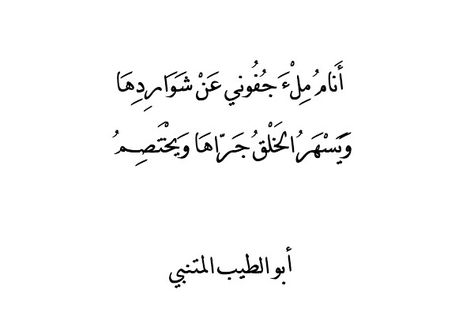 أَنَامُ مِلْءَ جُفُوني عَنْ شَوَارِدِهَا
وَيَسْهَرُ الخَلْقُ جَرّاهَا وَيخْتَصِمُ
أبو الطيب المتنبي